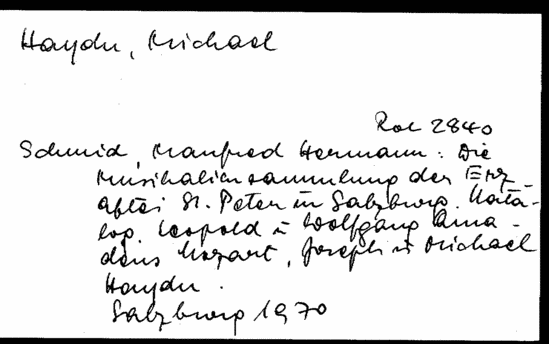 Haydn, Michael
Rok 2840
Schmid, Manfred Hermann: Die
Musikaliensammlung der Erz-
abtei St. Peter in Salzburg. Kata-
log. Leopold u Wolfgang Ama-
deus Mozart, Joseph u Michael
Haydn.
Salzburg 1970